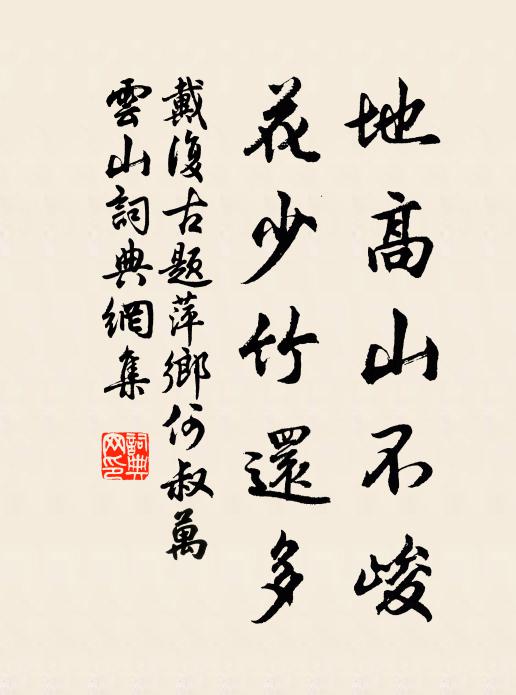 地高山不峻
花少竹還多
戴復古題萍鄉何叔萬
雲山詞典網集
詞典網印